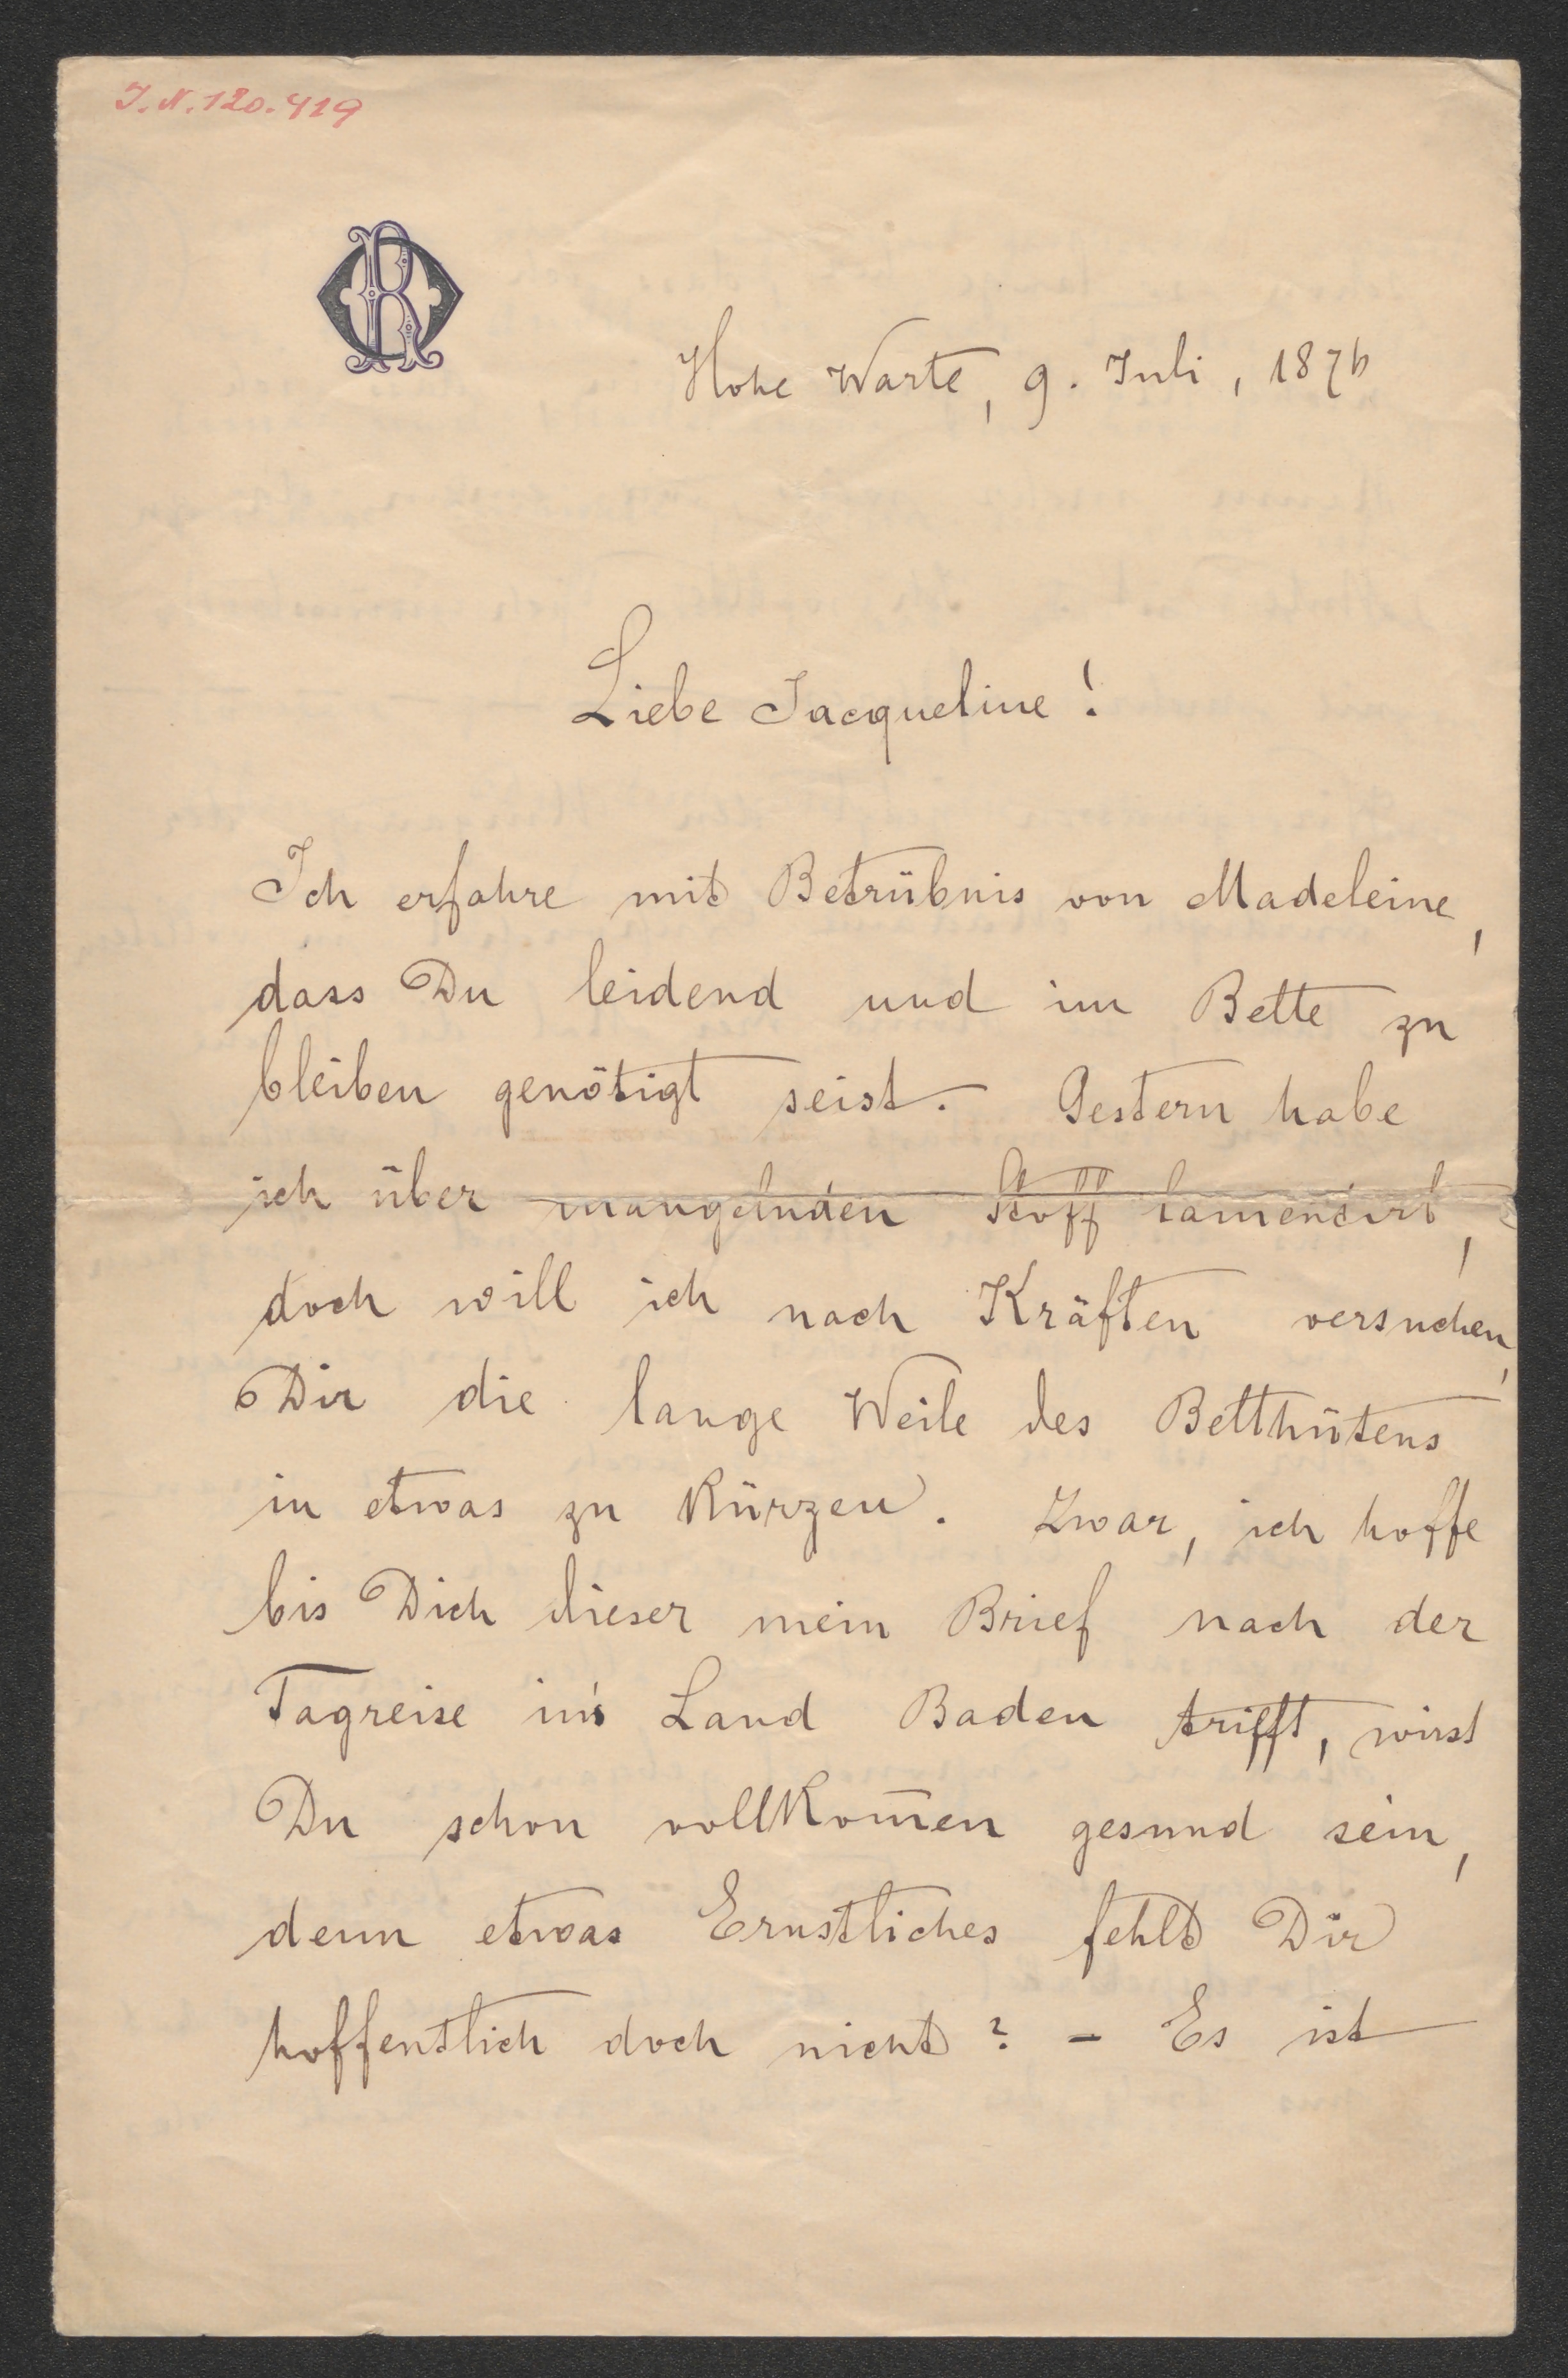 I.N. 120.419
OR
Hohe Warte, 9. Juli, 1876
Liebe Jacqueline!
Ich erfahre mit Betrübnis von Madeleine,
dass Du leidend und im Bette zu
bleiben genötigt seist. Gestern habe
ich über mangelnden Stoff lamentirt,
doch will ich nach Kräften versuchen,
Dir die lange Weile des Betthütens
in etwas zu kürzen. Zwar, ich hoffe
bis Dich dieser mein Brief nach der
Tagreise in's Land Baden trifft, wirst
Du schon vollkom̄en gesund sein,
denn etwas Ernstliches fehlt Dir
hoffentlich doch nicht? – Es ist